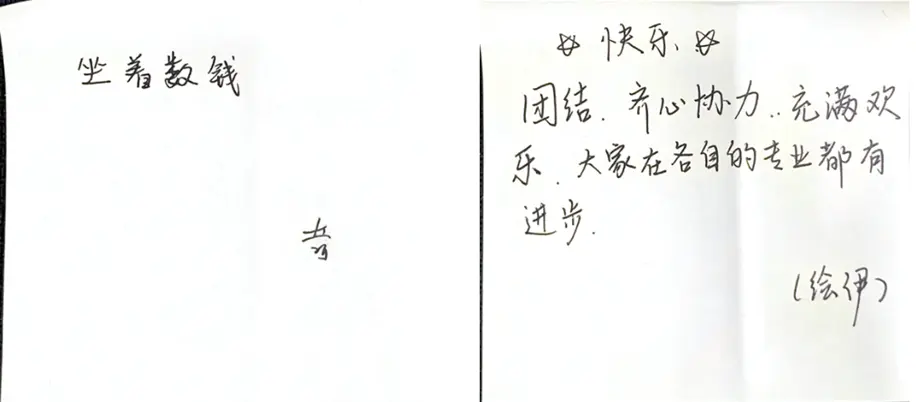 坐着数钱
☆ 快乐 ☆
团结、齐心协力、充满欢
乐、大家在各自的专业都有
进步.
(绘伊)